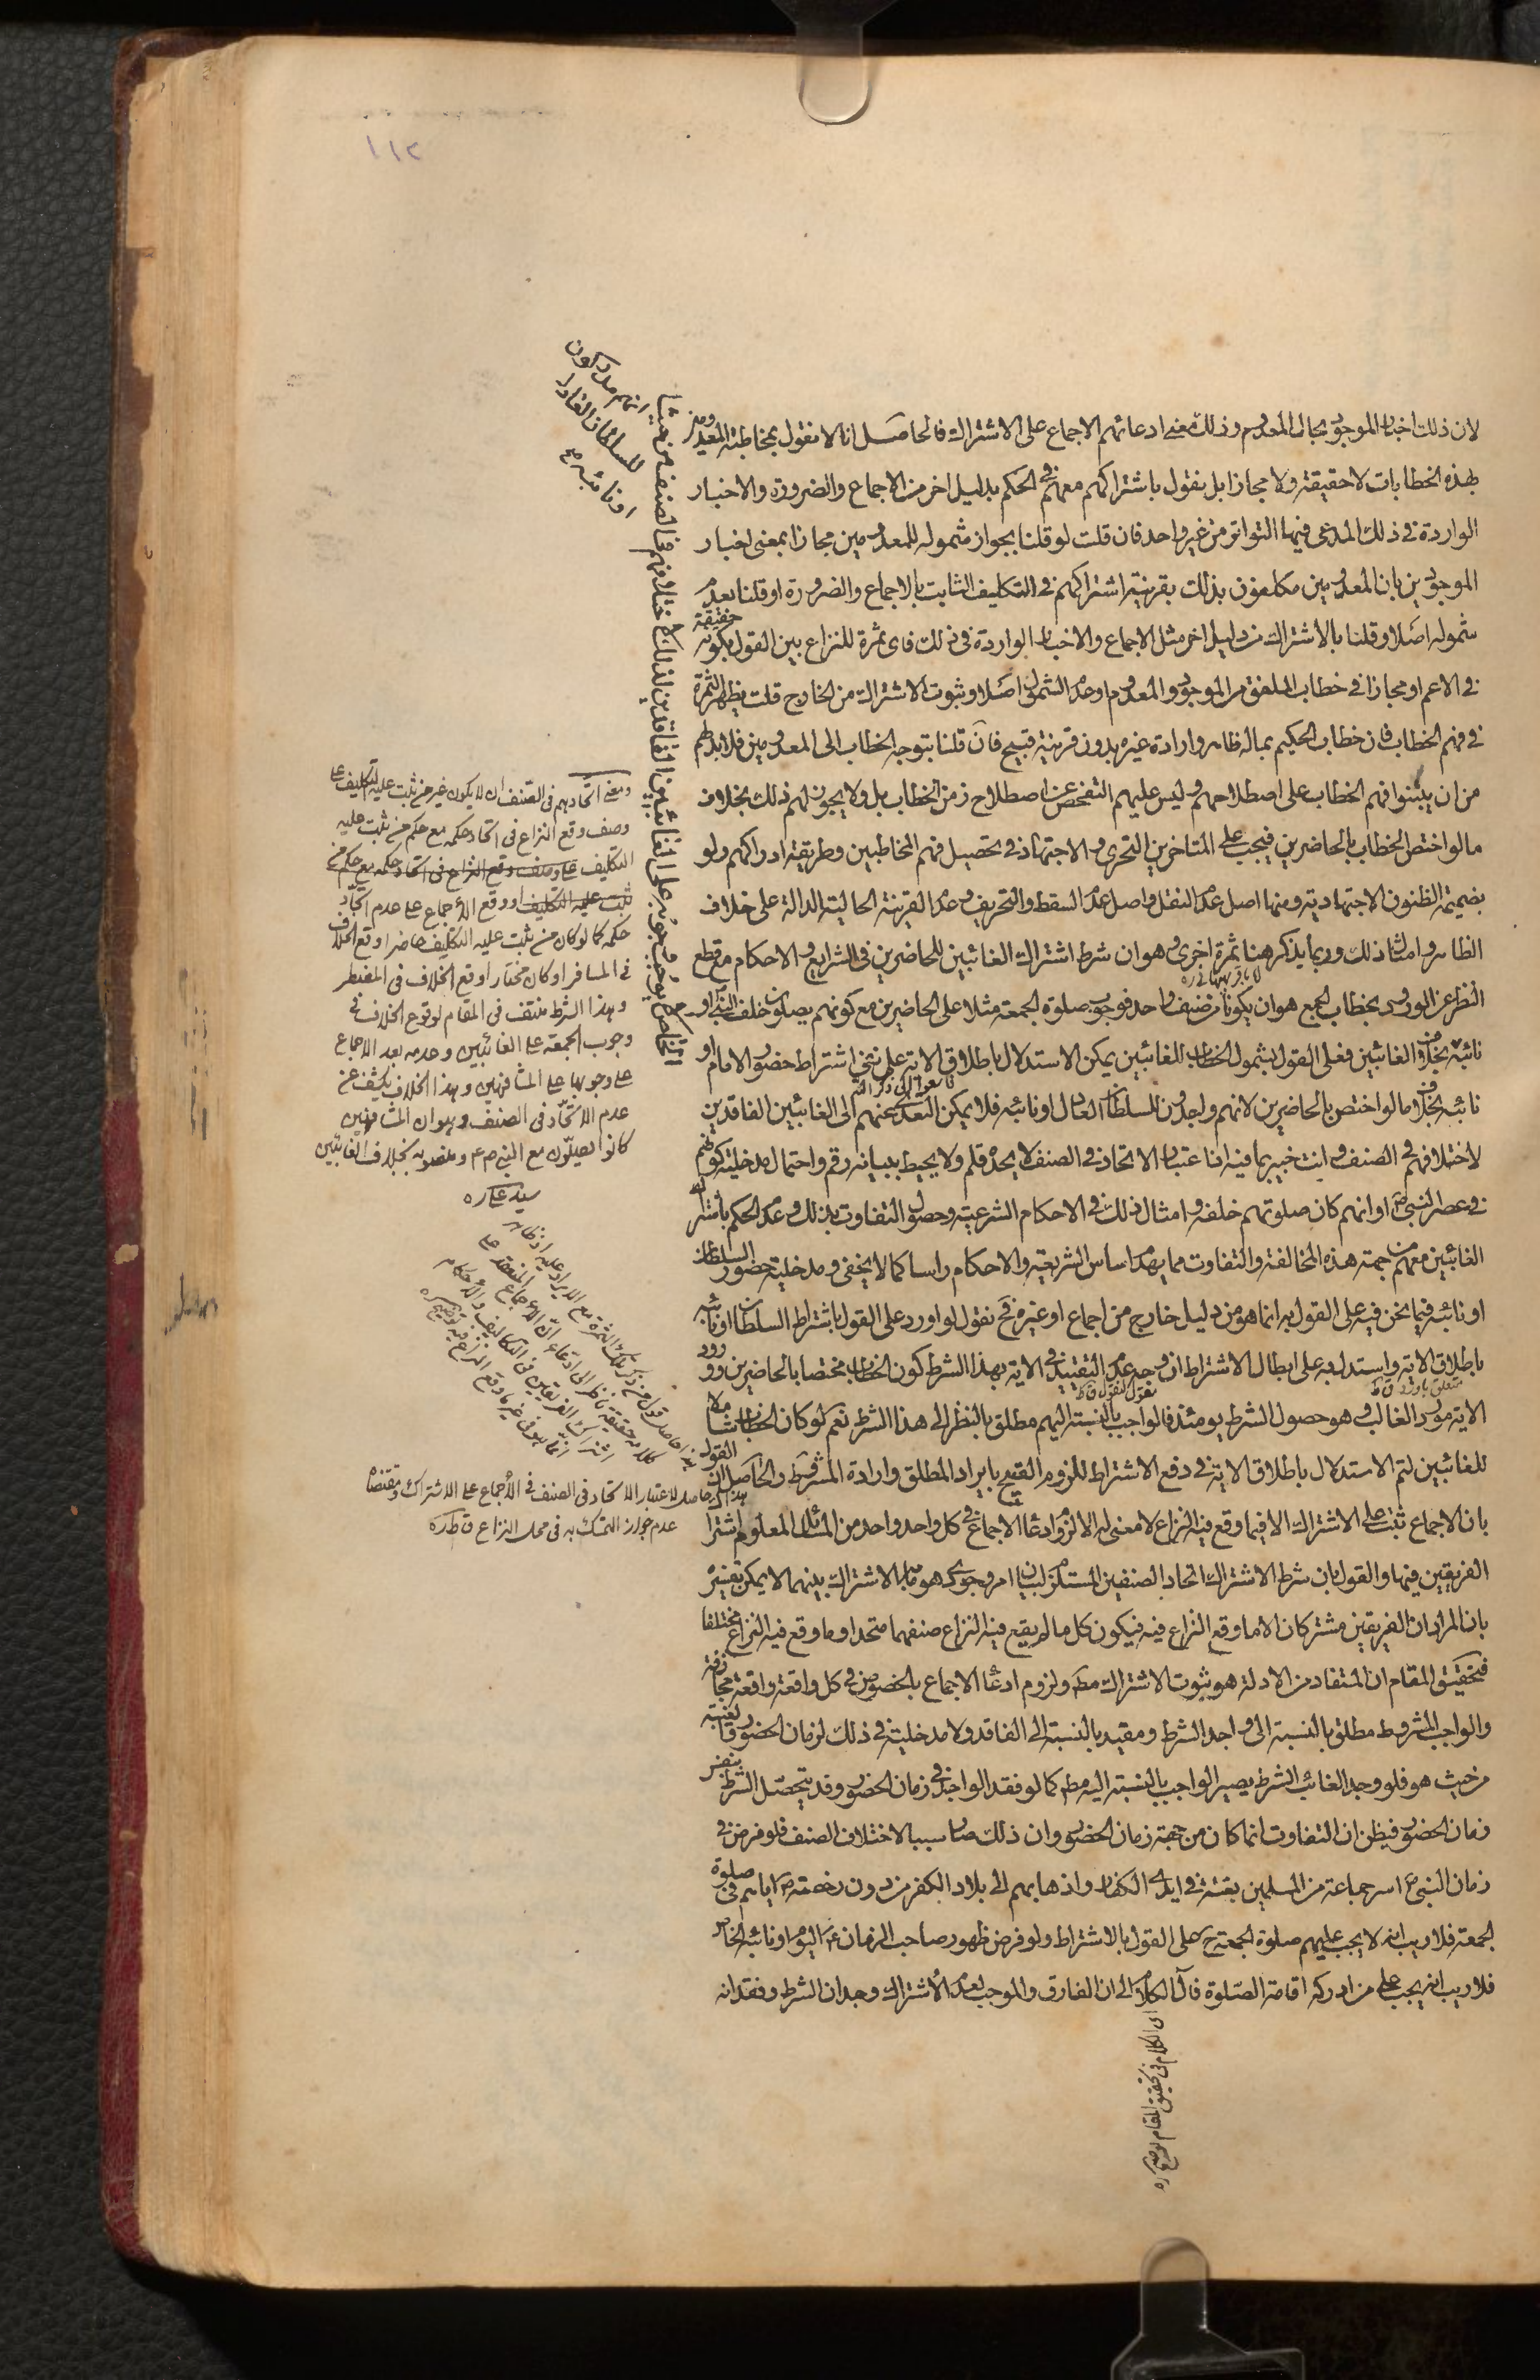 ١١٢
لان ذلك اخبار للموجود بحال المعدوم وذلك معنى ادعائهم الاجماع على الاشتراك فالحاصل انا لا نقول بمخاطبة المعدومين
بهذه الخطابات لا حقيقة ولا مجازا بل نقول باشتراكهم معهم في الحكم بدليل اخر من الاجماع والضرورة والاخبار
الواردة في ذلك المدعى فيها التواتر من غير واحد فان قلت لو قلنا بجواز شموله للمعدومين مجازا بمعنى اخبار
الموجودين بان المعدومين مكلفون بذلك بقرينة اشتراكهم في التكليف الثابت بالاجماع والضرورة او قلنا بعدم
شموله اصلا وقلنا بالاشتراك من دليل اخر مثل الاجماع والاخبار الواردة في ذلك فاى ثمرة للنزاع بين القول بكونه حقيقة
في الاعم او مجازا في خطاب الملفق من الموجود والمعدوم او عدم الشمول اصلا وثبوت الاشتراك من الخارج قلت يظهر الثمرة
في فهم الخطاب فان خطاب الحكيم بماله ظاهر وارادة غيره بدون قرينة قبيح فان قلنا بتوجه الخطاب الى المعدومين فلا بد لهم
من ان يبتنوا فهم الخطاب على اصطلاحهم وليس عليهم التفحص عن اصطلاح زمن الخطاب بل ولا يجوز لهم ذلك بخلاف
ما لو اختص الخطاب بالحاضرين فيجب على المتاخرين التحرى والاجتهاد في تحصيل فهم المخاطبين وطريقة ادراكهم ولو
بضميمة الظنون الاجتهادية ومنها اصل عدم النقل واصل عدم السقط والتحريف وعدم القرينة الحالية الدالة على خلاف
الظاهر وامثال ذلك وربما يذكر هنا ثمرة اخرى وهو ان شرط اشتراك الغائبين للحاضرين في الشرايع والاحكام مع قطع
النظر عن الورود بخطاب الجمع هو ان يكونا من صنف واحد فوجوب صلوة الجمعة مثلا على الحاضرين مع كونهم يصلون خلف النبي او
نائبه بخلاف الغائبين فعلى القول بشمول الخطاب للغائبين يمكن الاستدلال باطلاق الاية على نفي اشتراط حضور الامام او
نائبه بخلاف ما لو اختص بالحاضرين لانهم واجدون للسلطان العادل او نائبه فلا يمكن التعدى عنهم الى الغائبين الفاقدين
لاختلافهم في الصنف وانت خبير بما فيه اذ اعتبار الاتحاد في الصنف لا يحده قلم ولا يحيط ببيانه رقم واحتمال مدخلية كونهم
في عصر النبي ص او انهم كان صلوتهم خلفه وامثال ذلك في الاحكام الشرعية وحصول التفاوت بذلك وعدم الحكم باشتراك
الغائبين معهم من جهة هذه المخالفة والتفاوت مما يهدم اساس الشريعة والاحكام راسا كما لا يخفى ومدخلية حضور السلطان
او نائبه فيما نحن فيه على القول به انما هو من دليل خارج من اجماع او غيره فح نقول لو اورد على القول باشتراط السلطان او نائبه
باطلاق الاية واستدل به على ابطال الاشتراط اذ وجه عدم التقييد في الاية بهذا الشرط كون الخطاب مختصا بالحاضرين وورود
الاية مورد الغالب وهو حصول الشرط يومئذ فالواجب بالنسبة اليهم مطلق بالنظر الى هذا الشرط نعم لو كان الخطاب شاملا
للغائبين لتم الاستدلال باطلاق الاية في دفع الاشتراط للزوم القبح بايراد المطلق وارادة المشروط والحاصل ان القول
بان الاجماع ثبت على الاشتراك الا فيما وقع فيه النزاع لا معنى له الا لزوم ادعاء الاجماع في كل واحد واحد من المسائل المعلوم اشتراك
الفريقين فيها والقول بان شرط الاشتراك اتحاد الصنفين المستلزم لبيان امر وجودى هو ما به الاشتراك بينهما لا يمكن تفسيره
بان المراد ان الفريقين مشتركان الا ما وقع النزاع فيه فيكون كل ما لم يقع فيه النزاع صنفهما متحدا وما وقع فيه النزاع مختلفا
فتحقيق المقام ان المستفاد من الادلة هو ثبوت الاشتراك مط ولزوم ادعاء الاجماع بالخصوص في كل واقعة واقعة مجازفة
والواجب المشروط مطلق بالنسبة الى واجد الشرط ومقيد بالنسبة الى الفاقد ولا مدخلية في ذلك لزمان الحضور والغيبة
من حيث هو فلو وجد الغائب الشرط يصير الواجب بالنسبة اليه مط كما لو فقد الواجد في زمان الحضور وقد يتحصل الشرط بنفس
زمان الحضور فيظن ان التفاوت انما كان من جهة زمان الحضور وان ذلك صار سببا لاختلاف الصنف فلو فرض في
زمان النبي ص اسر جماعة من المسلمين بغتة في ايدى الكفار واذهابهم الى بلاد الكفر من دون رخصته ص اياهم في صلوة
الجمعة فلا ريب انه لا يجب عليهم صلوة الجمعة ح على القول بالاشتراط ولو فرض ظهور صاحب الزمان ع اليوم او نائبه الخاص
فلا ريب انه يجب على من ادركه اقامة الصلوة فآل الكلام الى ان الفارق والموجب لعدم الاشتراك وجدان الشرط وفقدانه
ومعنى اتحادهم في الصنف ان لا يكون غير من ثبت عليه التكليف على
وصف وقع النزاع في اتحاد حكمه مع حكم من ثبت عليه
التكليف على وصف وقع النزاع في اتحاد حكمه مع حكم من
ثبت عليه التكليف او وقع الأجماع على عدم اتحاد
حكمه كما لو كان من ثبت عليه التكليف حاضرا وقع الخلاف
في المسافر او كان مختارا وقع الخلاف في المضطر
وهذا الشرط منتف في المقام لوقوع الخلاف في
وجوب الجمعة على الغائبين وعدمه بعد الاجماع
على وجوبها على المشافهين وهذا الخلاف يكشف عن
عدم الاتحاد في الصنف وهو ان المشافهين
كانوا يصلون مع النبي ص و بخلاف الغائبين
سيد على ره
هذا حاصل لاعتبار الاتحاد في الصنف في الأجماع على الاشتراك ومقتضاه
عدم جواز التمسك به في محل النزاع
اى الكلام في تحقيق المقام